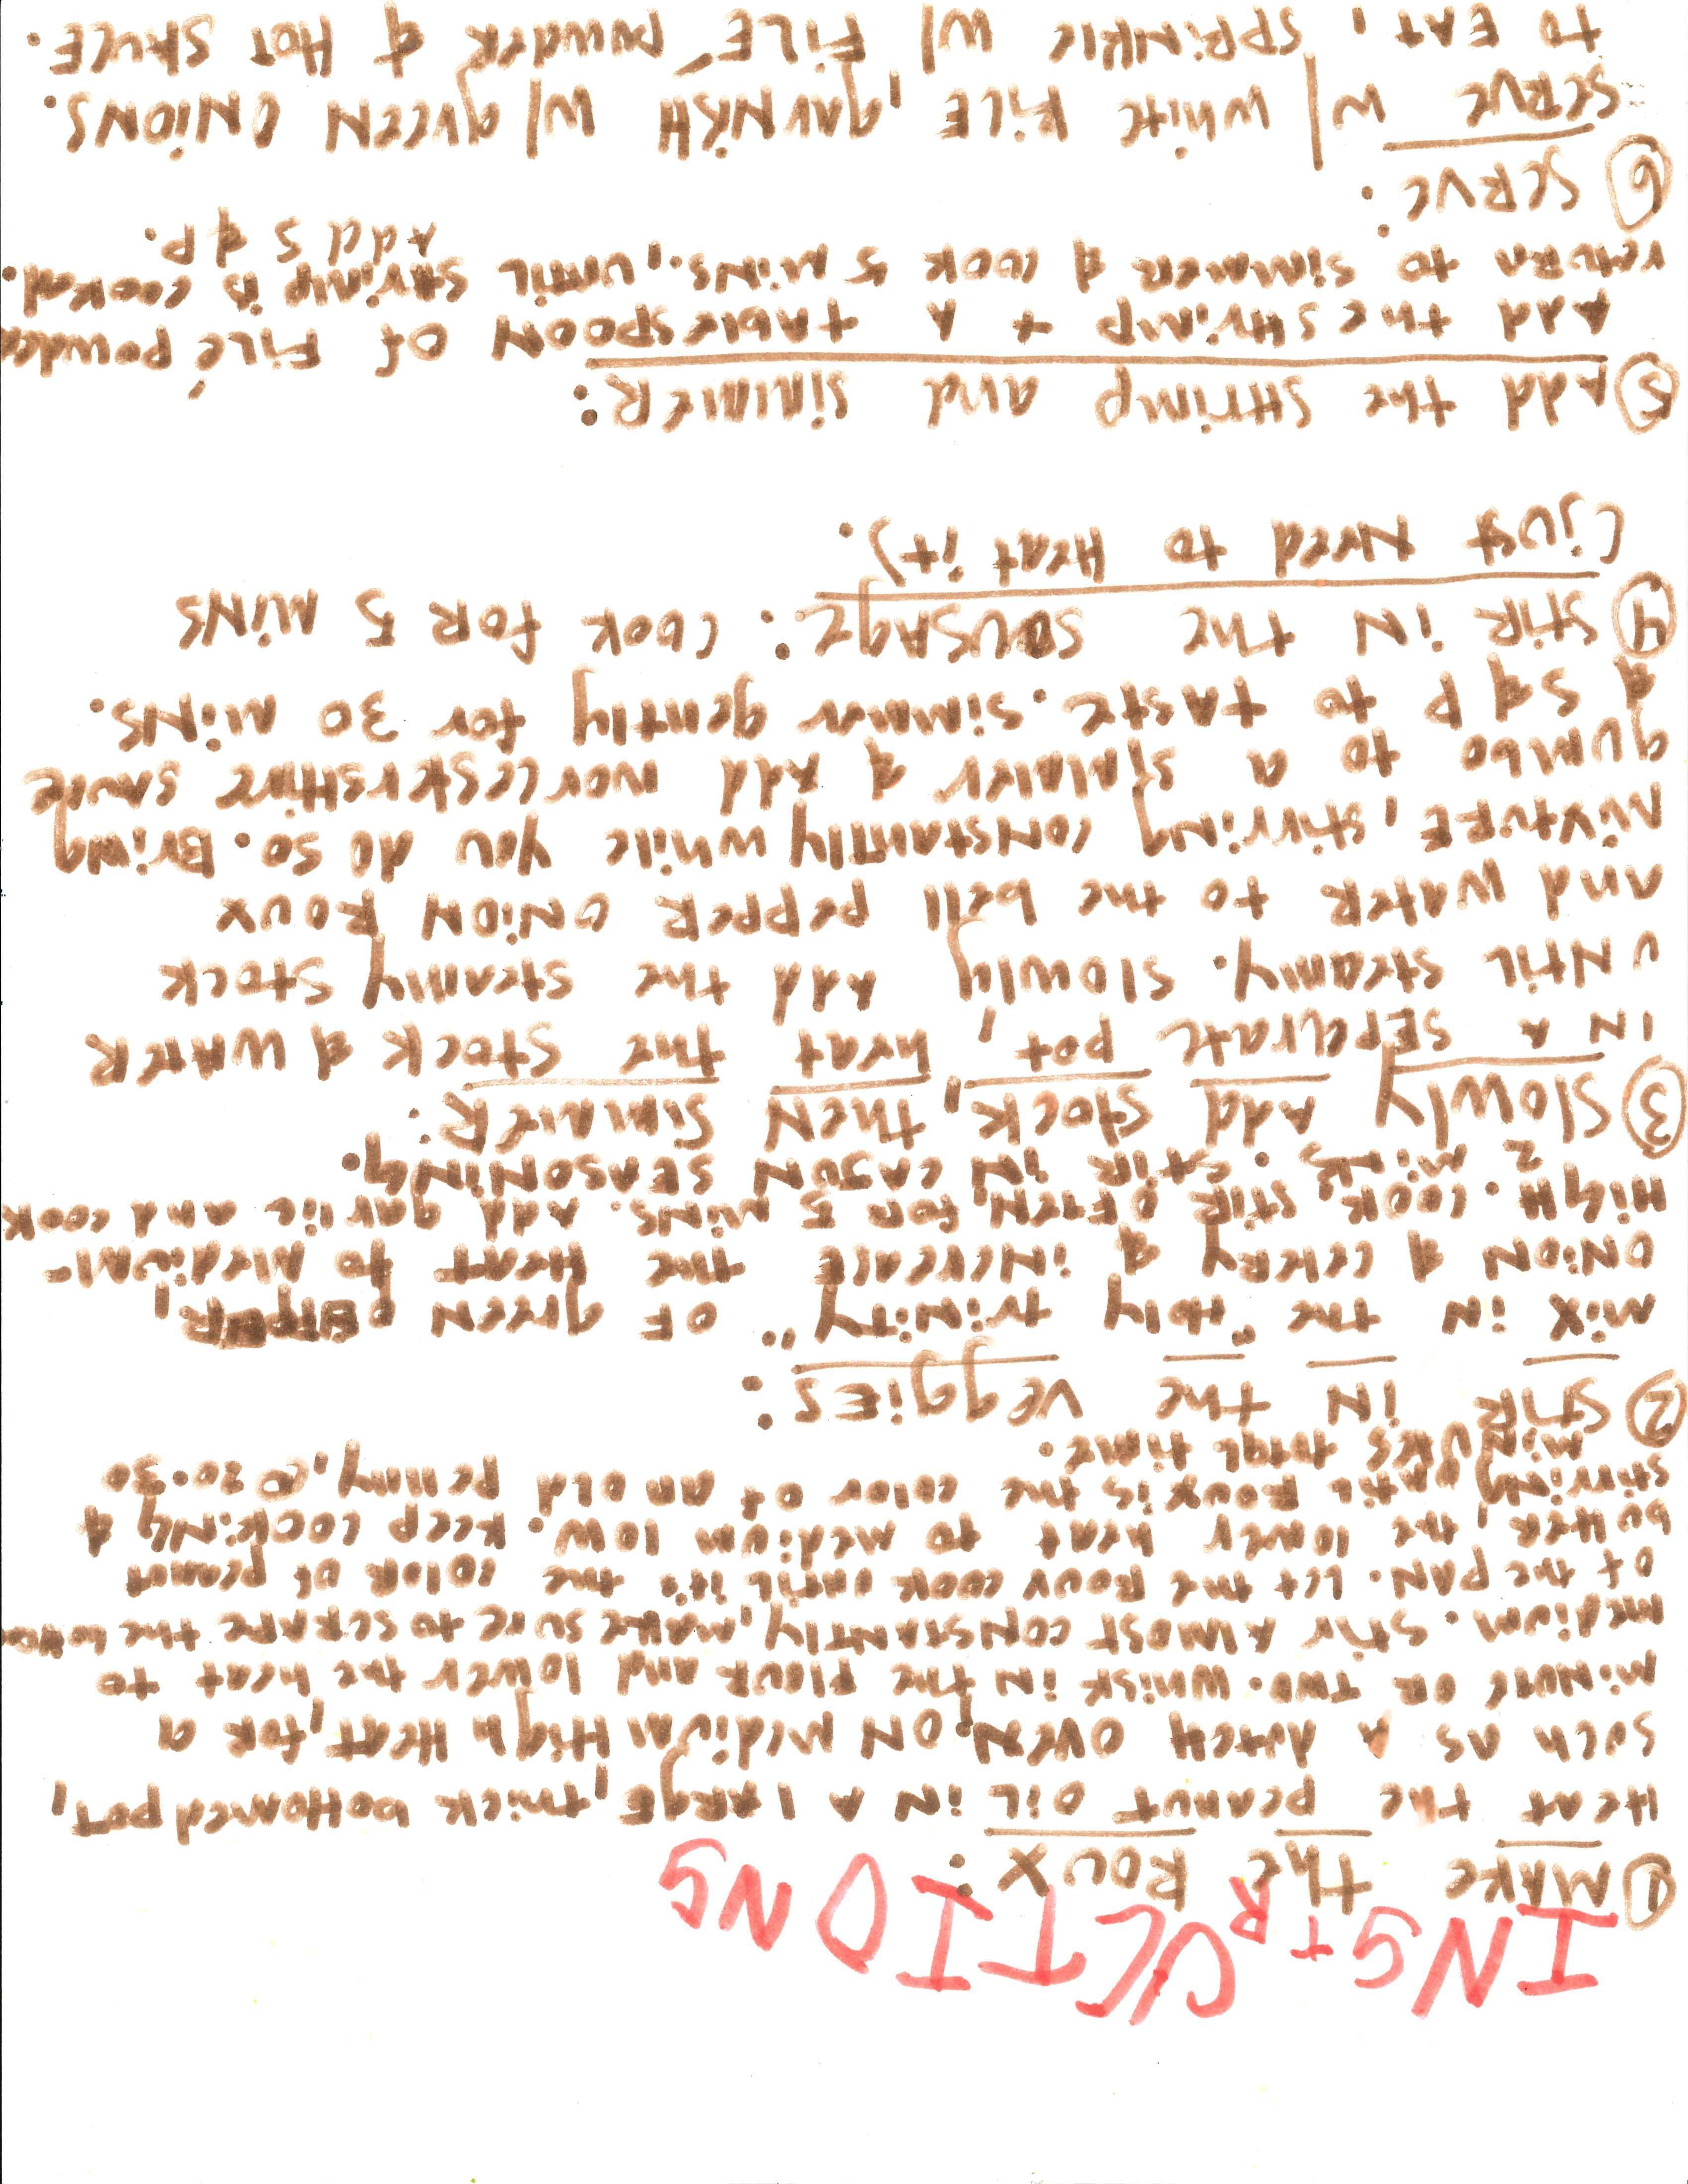 INStRUCTIONS
① MAKE the ROUX:
Heat the peanut oil in A large, thick bottomed pot,
such as A dutch oven, on medium High Heat, for a
minute or two. Whisk in the flour and lower the heat to
medium. Stir almost constantly, make sure to scrape the bottom
of the pan. Let the Roux cook until it's the color of peanut
butter, the lower heat to medium low. Keep cooking &
stirring until Roux is the color of an old penny, @ 20-30
minutes total time.
② Stir in the veggies:
mix in the "holy trinity" of green pepper,
onion & celery & increase the heat to medium-
high. Cook, stir often, for 5 mins. Add garlic and cook
2 mins. Stir in cajun seasoning.
③ Slowly Add stock, then simmer:
in a seperate pot, heat the stock & water
until steamy. Slowly add the steamy stock
and water to the bell pepper onion Roux
mixture, stirring constantly while you do so. Bring
gumbo to a simmer & add worcestershire sauce
& S & P to taste. Simmer gently for 30 mins.
④ Stir in the sousage: cook for 5 mins
(just need to heat it).
⑤ Add the shrimp and simmer:
Add the shrimp + A tablespoon of Filé powder
return to simmer & cook 5 mins., until shrimp is cooked.
Add S & P.
⑥ Serve:
Serve w/ white rice, garnish w/ green onions.
to eat, sprinkle w/ Filé powder & hot sauce.